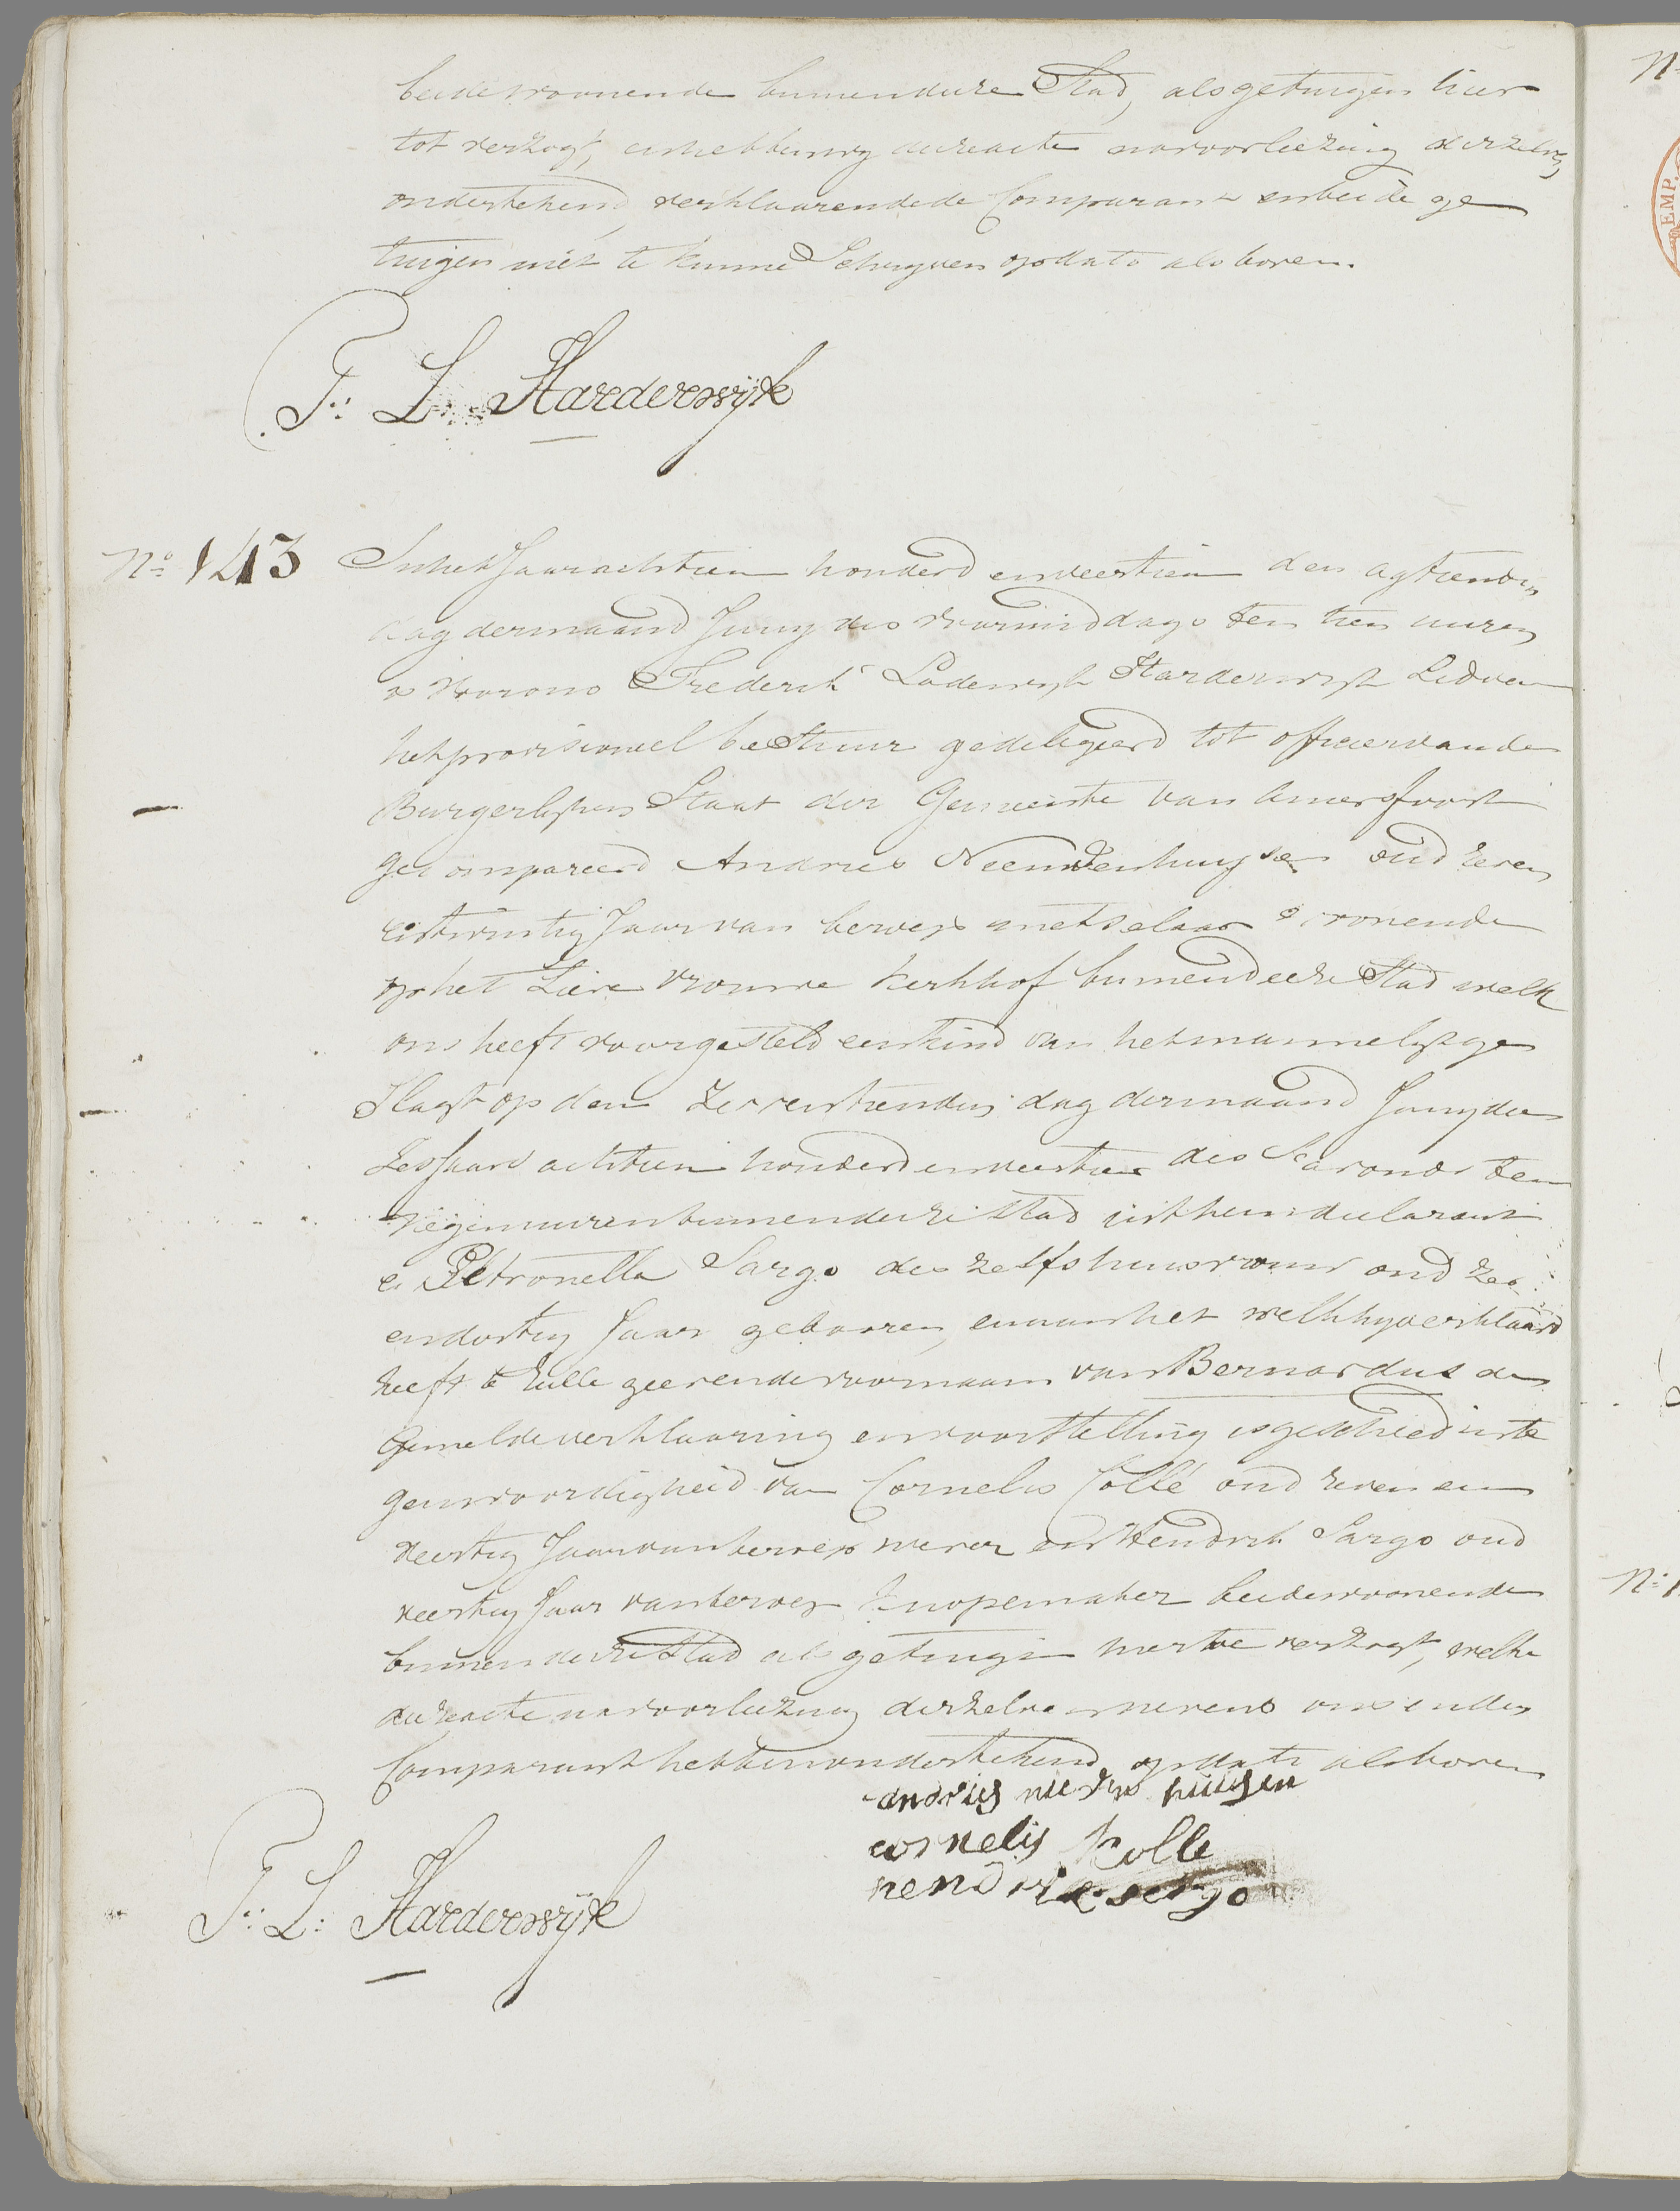 beide woonende binnen deeze Stad, als getuigen hier
tot verzogt, en hebben wy deeze acte na voorleezing derzelve,
onderteekend, verklaarende de Comparant en beide ge
tuigen niet te kunne Schryven op dato als boven.
F: L: Harderwijk
No 143 In het Jaar achtien honderd en veertien den agtiende
dag der maand Juny des voormiddags ten tien uuren
is voor ons Frederik Lodewyk Harderwyk Lid van
het provisioneel bestuur gedelegeerd tot officier van den
Burgerlyken Staat der Gemeente van Amersfoort
gecompareerd Andries Neerdenhuysen oud zeven
en twintig Jaar van beroep metselaar woonende
op het Lieve vrouwe kerkhof binnen deeze Stad welk
ons heeft voorgesteld een kind van het mannelyk ge
slagt op den zeeventienden dag der maand Juny de
zes Jaars achtien honderd en veertien des avonds ten
negen uuren binnen deeze Stad uit hem declarant
en Petronella Sargo des zelfs huisvrouw oud zes
en dertig Jaar gebooren, en aan het welk hy verklaard
heeft te zulle geeven de voornaam van Bernardus de
Gemelde verklaaring en voorstelling is geschied in te
genwoordigheid van Cornelis Collé oud zeven en
veertig Jaar van beroep wever en Hendrik Sargo oud
veertig Jaar van beroep knopemaker beide woonende
binnen deeze Stad als getuigen hier toe verzogt, welke
deeze acte na voorleezing derzelve nevens ons en den
Comparant hebben onderteekend op dato als boven
andries neerden huijsen
cornelis kolle
hendrik sergo
F: L: Harderwijk
N
EMP.
No 1